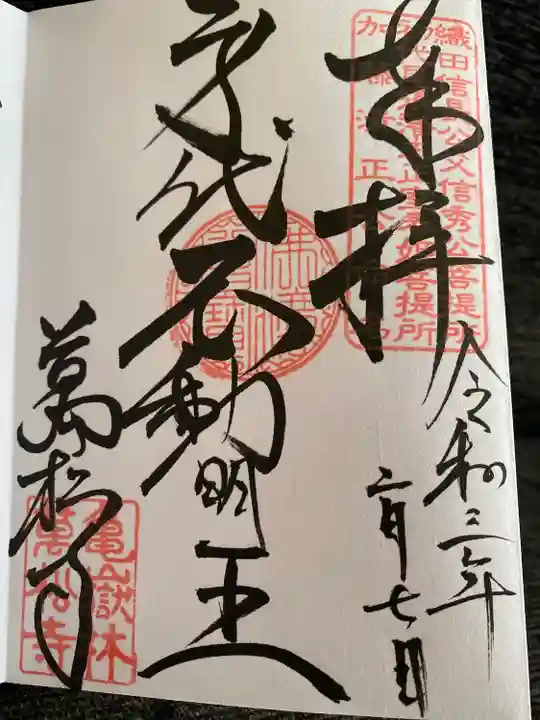 奉拝
令和三年
二月七日
身代不動明王
萬松寺
織田信長公父信秀公菩提所
加藤清正
亀嶽林
萬松寺